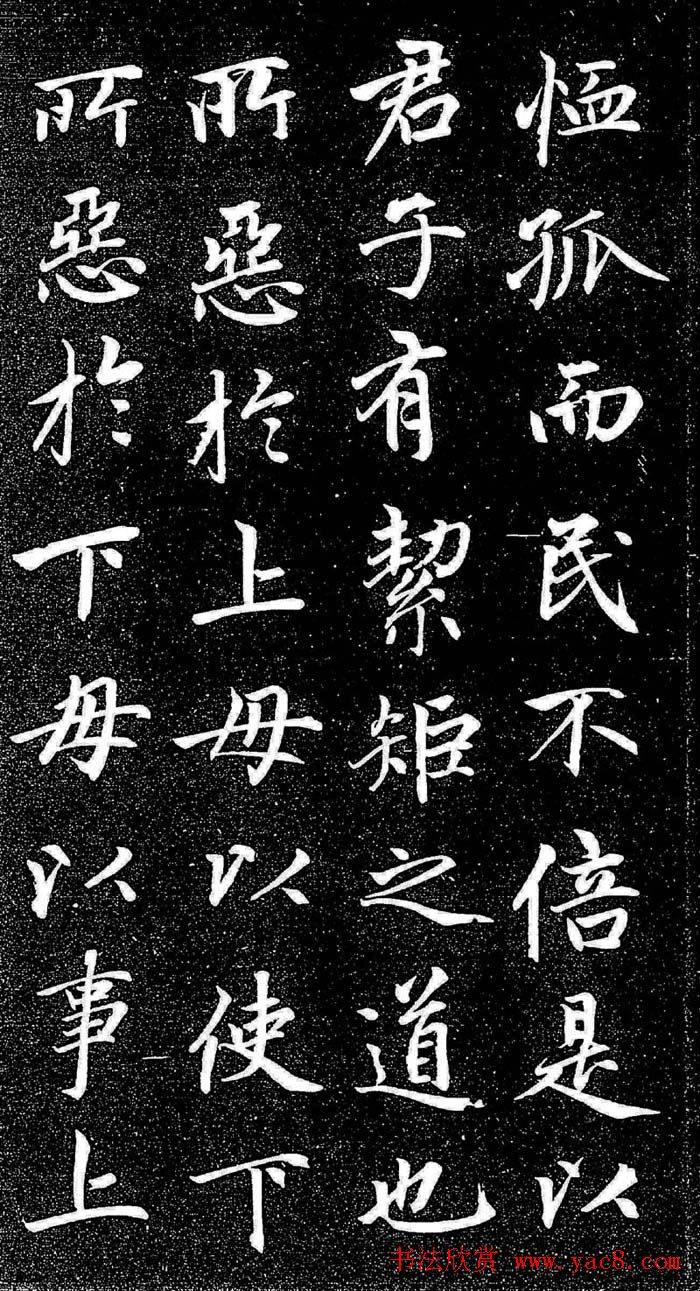 恤孤而民不倍是以
君子有絜矩之道也
所惡於上毋以使下
所惡於下毋以事上
书法欣赏 www.yac8.com